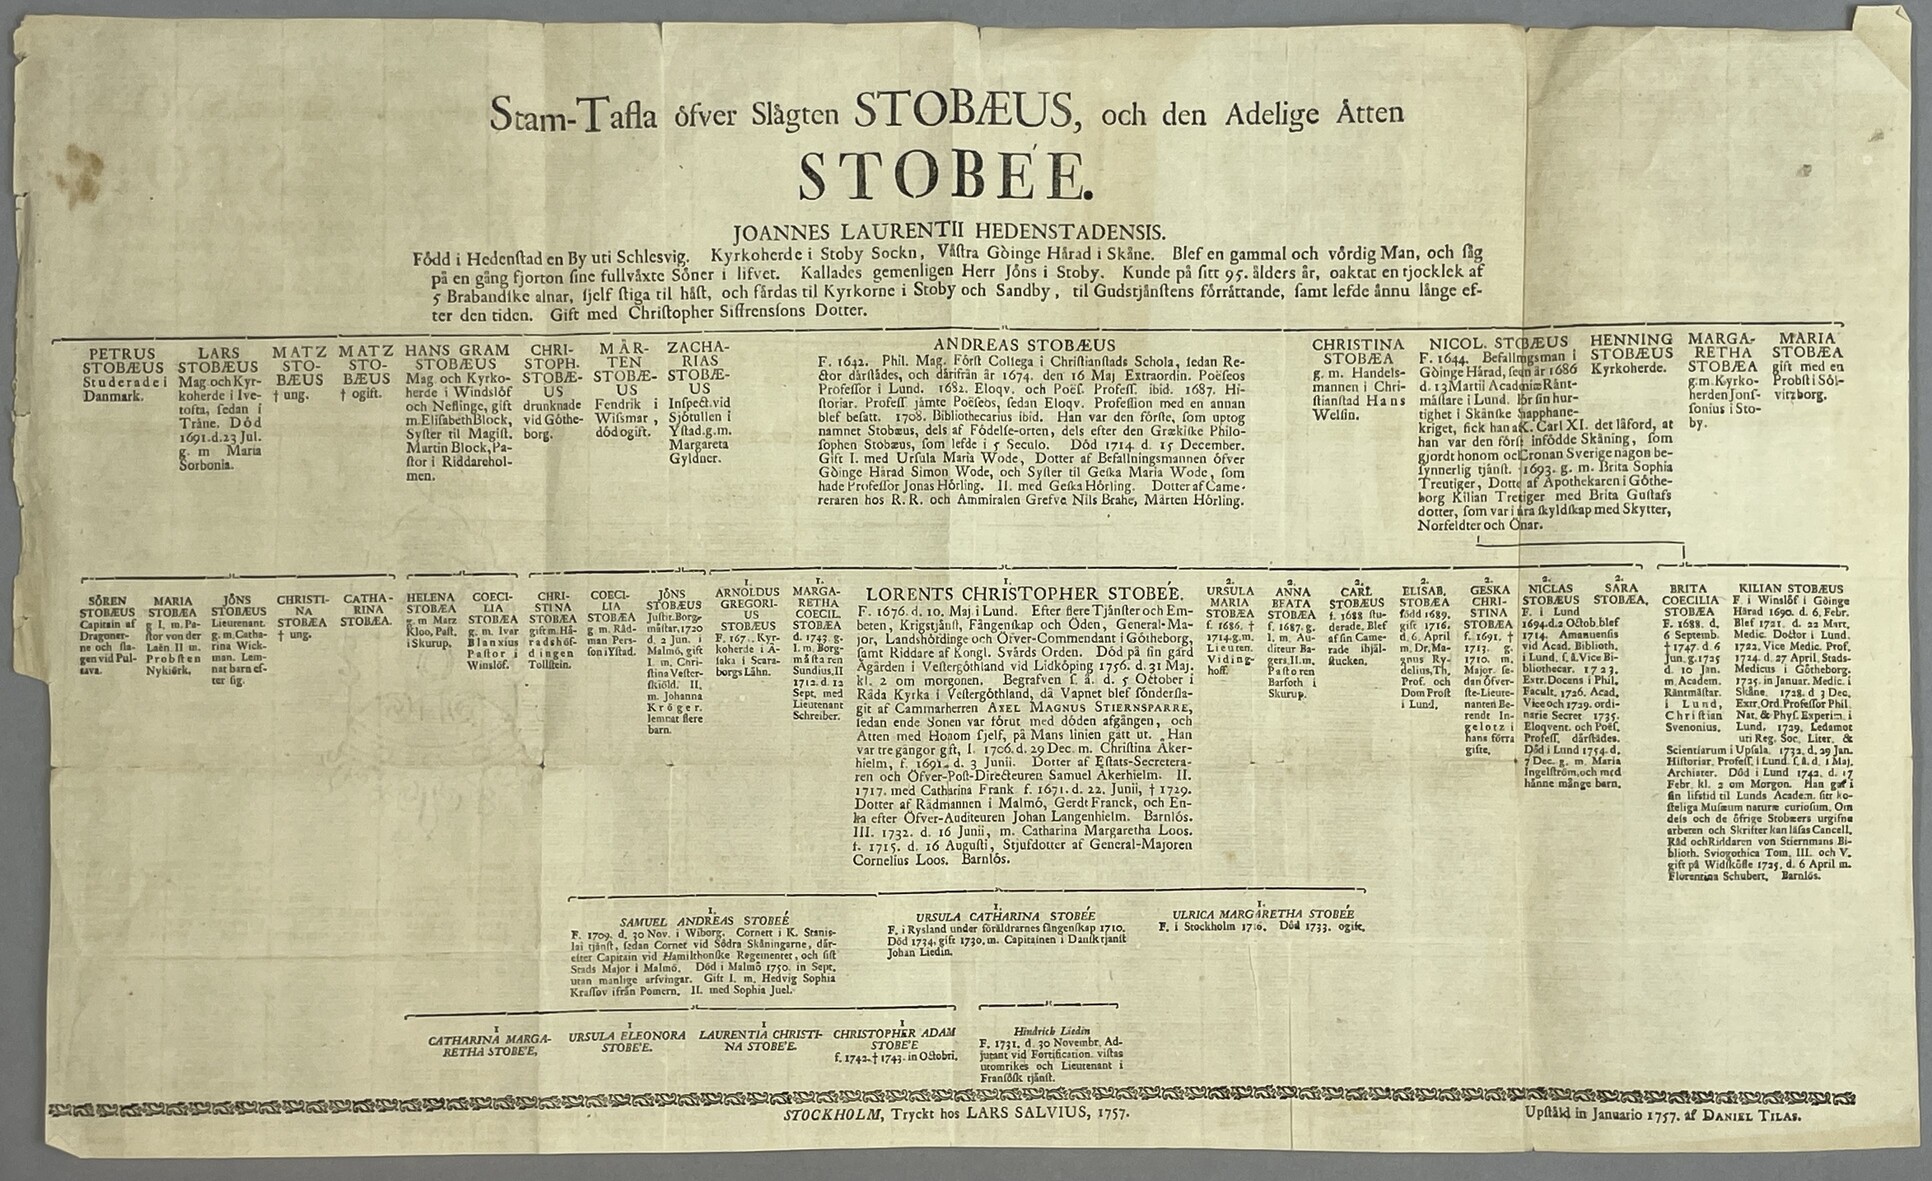 Stam-Tafla öfver Slägten STOBÆUS, och den Adelige Ätten
STOBÉE.
JOANNES LAURENTII HEDENSTADENSIS.
Född i Hedenstad en By uti Schlesvig. Kyrkoherde i Stoby Sockn, Västra Göinge Härad i Skåne. Blef en gammal och vördig Man, och såg
på en gång fjorton sine fullväxte Söner i lifvet. Kallades gemenligen Herr Jöns i Stoby. Kunde på sitt 95. ålders år, oaktat en tjocklek af
5 Brabandske alnar, sjelf stiga til häst, och färdas til Kyrkorne i Stoby och Sandby, til Gudstjänstens förrättande, samt lefde ännu länge ef-
ter den tiden. Gift med Christopher Siffrensons Dotter.
PETRUS
STOBÆUS
Studerade i
Danmark.
LARS
STOBÆUS
Mag. och Kyr-
koherde i Ive-
tofta, sedan i
Träne. Död
1691. d. 23 Jul.
g. m Maria
Sorbonia.
MATZ
STO-
BÆUS
† ung.
MATZ
STO-
BÆUS
† ogift.
HANS GRAM
STOBÆUS
Mag. och Kyrko-
herde i Windslöf
och Neflinge, gift
m. Elisabeth Block,
Syster til Magist.
Martin Block, Pa-
stor i Riddarehol-
men.
CHRI-
STOPH.
STOBÆ-
US
drunknade
vid Göthe-
borg.
MÅR-
TEN
STOBÆ-
US
Fendrik i
Wismar,
död ogift.
ZACHA-
RIAS
STOBÆ-
US
Inspect. vid
Sjötullen i
Ystad. g. m.
Margareta
Gyldner.
ANDREAS STOBÆUS
F. 1642. Phil. Mag. Först Collega i Christianstads Schola, sedan Re-
ctor därstädes, och därifrån år 1674. den 16 Maj Extraordin. Poëseos
Professor i Lund. 1682. Eloqv. och Poës. Profess. ibid. 1687. Hi-
storiar. Profess. jämte Poëseos, sedan Eloqv. Profession med en annan
blef besatt. 1708. Bibliothecarius ibid. Han var den förste, som uptog
namnet Stobæus, dels af Födelse-orten, dels efter den Grækiske Philo-
sophen Stobæus, som lefde i 5 Seculo. Död 1714. d. 15 December.
Gift I. med Ursula Maria Wode, Dotter af Befallningsmannen öfver
Göinge Härad Simon Wode, och Syster til Geska Maria Wode, som
hade Professor Jonas Hörling. II. med Geska Hörling. Dotter af Came-
reraren hos R. R. och Ammiralen Grefve Nils Brahe, Mårten Hörling.
CHRISTINA
STOBÆA
g. m. Handels-
mannen i Chri-
stianstad Hans
Welsin.
NICOL. STOBÆUS
F. 1644. Befallningsman i
Göinge Härad, sedan år 1686
d. 13 Martii Academiæ Ränt-
mästare i Lund. För sin hur-
tighet i Skånske Snapphane-
kriget, fick han af K. Carl XI. det låford, at
han var den först infödde Skåning, som
gjordt honom och Cronan Sverige någon be-
synnerlig tjänst. 1693. g. m. Brita Sophia
Treutiger, Dotter af Apothekaren i Göthe-
borg Kilian Tretiger med Brita Gustafs
dotter, som var i nära skyldskap med Skytter,
Norfeldter och Önar.
HENNING
STOBÆUS
Kyrkoherde.
MARGA-
RETHA
STOBÆA
g. m. Kyrko-
herden Jons-
sonius i Sto-
by.
MARIA
STOBÆA
gift med en
Probst i Söl-
vitzborg.
SÖREN
STOBÆUS
Capitain af
Dragoner-
ne och sla-
gen vid Pul-
tava.
MARIA
STOBÆA
g I. m. Pa-
stor von der
Laën II m.
Probsten
Nykiörk.
JÖNS
STOBÆUS
Lieutenant.
g. m. Catha-
rina Wick-
man. Lem-
nat barn ef-
ter sig.
CHRISTI-
NA
STOBÆA
† ung.
CATHA-
RINA
STOBÆA.
HELENA
STOBÆA
g. m Matz
Kloo, Past.
i Skurup.
COECI-
LIA
STOBÆA
g. m. Ivar
Blanxius
Pastor i
Winslöf.
CHRI-
STINA
STOBÆA
gift m. Hä-
radshöf-
dingen
Tollstein.
COECI-
LIA
STOBÆA
g m. Råd-
man Pers-
son i Ystad.
JÖNS
STOBÆUS
Justit. Borg-
mästar. 1720
d. 2 Jun. i
Malmö, gift
I. m. Chri-
stina Vester-
skiöld. II.
m. Johanna
Kröger.
lemnat flere
barn.
1.
ARNOLDUS
GREGORI-
US
STOBÆUS
F. 167. Kyr-
koherde i A-
saka i Scara-
borgs Lähn.
1.
MARGA-
RETHA
COECIL.
STOBÆA
d. 1743. g.
I. m. Borg-
mästaren
Sundius, II
1712. d. 12
Sept. med
Lieutenant
Schreiber.
1.
LORENTS CHRISTOPHER STOBEÉ.
F. 1676. d. 10. Maj i Lund. Efter flere Tjänster och Em-
beten, Krigstjänst, Fångenskap och Öden, General-Ma-
jor, Landshöfdinge och Öfver-Commendant i Götheborg,
samt Riddare af Kongl. Svärds Orden. Död på sin gård
Ågården i Vestergöthland vid Lidköping 1756. d. 31 Maj.
kl. 2 om morgonen. Begrafven s. å. d. 5 October i
Råda Kyrka i Vestergöthland, då Vapnet blef sönderfla-
git af Cammarherren AXEL MAGNUS STIERNSPARRE,
sedan ende Sonen var förut med döden afgången, och
Ätten med Honom sjelf, på Mans linien gått ut. Han
var tre gångor gift, I. 1706. d. 29 Dec. m. Christina Åker-
hielm, f. 1691. d. 3 Junii. Dotter af Estats-Secretera-
ren och Öfver-Post-Directeuren Samuel Åkerhielm. II.
1717. med Catharina Frank f. 1671. d. 22. Junii, † 1729.
Dotter af Rådmannen i Malmö, Gerdt Franck, och En-
ka efter Öfver-Auditeuren Johan Langenhielm. Barnlös.
III. 1732. d. 16 Junii, m. Catharina Margaretha Loos.
f. 1715. d. 16 Augusti, Stjufdotter af General-Majoren
Cornelius Loos. Barnlös.
2.
URSULA
MARIA
STOBÆA
f. 1686. †
1714. g. m.
Lieuten.
Viding-
hoff.
2.
ANNA
BEATA
STOBÆA
f. 1687. g.
I. m. Au-
diteur Ba-
gers, II. m.
Pastoren
Barfoth i
Skurup.
2.
CARL
STOBÆUS
f. 1688 stu-
derade. Blef
af sin Came-
rade ihjäl-
stucken.
2.
ELISAB.
STOBÆA
född 1689.
gift 1716.
d. 6. April
m. Dr. Ma-
gnus Ry-
delius, Th.
Prof. och
Dom Prost
i Lund.
2.
GESKA
CHRI-
STINA
STOBÆA
f. 1691. †
1713. g.
1710. m.
Major. se-
dan Öfver-
ste-Lieute-
nanten Be-
rende In-
gelotz i
hans förra
gifte.
2.
NICLAS
STOBÆUS
F. i Lund
1694. d. 2 Octob. blef
1714. Amanuensis
vid Acad. Biblioth.
i Lund. s. å. Vice Bi-
bliothecar. 1723.
Extr. Docens i Phil.
Facult. 1726. Acad.
Vice och 1729. ordi-
narie Secret 1735.
Eloqvent. och Poës.
Profess. därstädes.
Död i Lund 1754. d.
7 Dec. g. m. Maria
Ingelström, och med
hänne många barn.
2.
SARA
STOBÆA.
BRITA
COECILIA
STOBÆA
F. 1688. d.
6 Septemb.
† 1747. d. 6
Jun. g. 1725
d. 10 Jan.
m. Academ.
Räntmästar.
i Lund,
Christian
Svenonius.
KILIAN STOBÆUS
F. i Winslöf i Göinge
Härad 1690. d. 6. Febr.
Blef 1721. d. 22 Mart.
Medic. Doctor i Lund.
1722. Vice Medic. Prof.
1724. d. 27 April. Stads-
Medicus i Götheborg.
1725. in Januar. Medic. i
Skåne. 1728. d 3 Dec.
Extr. Ord. Professor Phil.
Nat. & Phys. Experim. i
Lund. 1729. Ledamot
uti Reg. Soc. Liter. &
Scientiarum i Upsala. 1732. d. 29 Jan.
Historiar. Profess. i Lund. s. å. d. 1 Maj.
Archiater. Död i Lund 1742. d. 17
Febr. kl. 2 om Morgon. Han gaf i
sin lifstid til Lunds Academ. sitt ko-
steliga Musæum naturæ curiosum. Om
dels och de öfrige Stobæers urgifne
arbeten och Skrifter kan läsas Cancell.
Råd och Riddaren von Stiernmans Bi-
blioth. Sviogothica Tom. III. och V.
gift på Widsköfle 1725. d. 6 April m.
Florentina Schubert. Barnlös.
1.
SAMUEL ANDREAS STOBEÉ
F. 1709. d. 30 Nov. i Wiborg. Cornett i K. Stanis-
lai tjänst, sedan Cornet vid Södra Skåningarne, där-
efter Capitain vid Hamilthonske Regementet, och sist
Stads Major i Malmö. Död i Malmö 1750. in Sept.
utan manlige arfvingar. Gift I. m. Hedvig Sophia
Krassov ifrån Pomern. II. med Sophia Juel.
1.
URSULA CATHARINA STOBEÉ
F. i Rysland under föräldrarnes fångenskap 1710.
Död 1734. gift 1730. m. Capitainen i Dansk tjänst
Johan Liedin.
1.
ULRICA MARGARETHA STOBEÉ
F. i Stockholm 1716. Död 1733. ogift.
1
CATHARINA MARGA-
RETHA STOBE'E,
1
URSULA ELEONORA
STOBE'E.
1
LAURENTIA CHRISTI-
NA STOBE'E.
1
CHRISTOPHER ADAM
STOBE'E
f. 1742. † 1743. in Octobri.
Hindrich Liedin
F. 1731. d. 30 Novembr. Ad-
jutant vid Fortification. vistas
utomrikes och Lieutenant i
Fransösk tjänst.
STOCKHOLM, Tryckt hos LARS SALVIUS, 1757.
Upstäld in Januario 1757. af DANIEL TILAS.